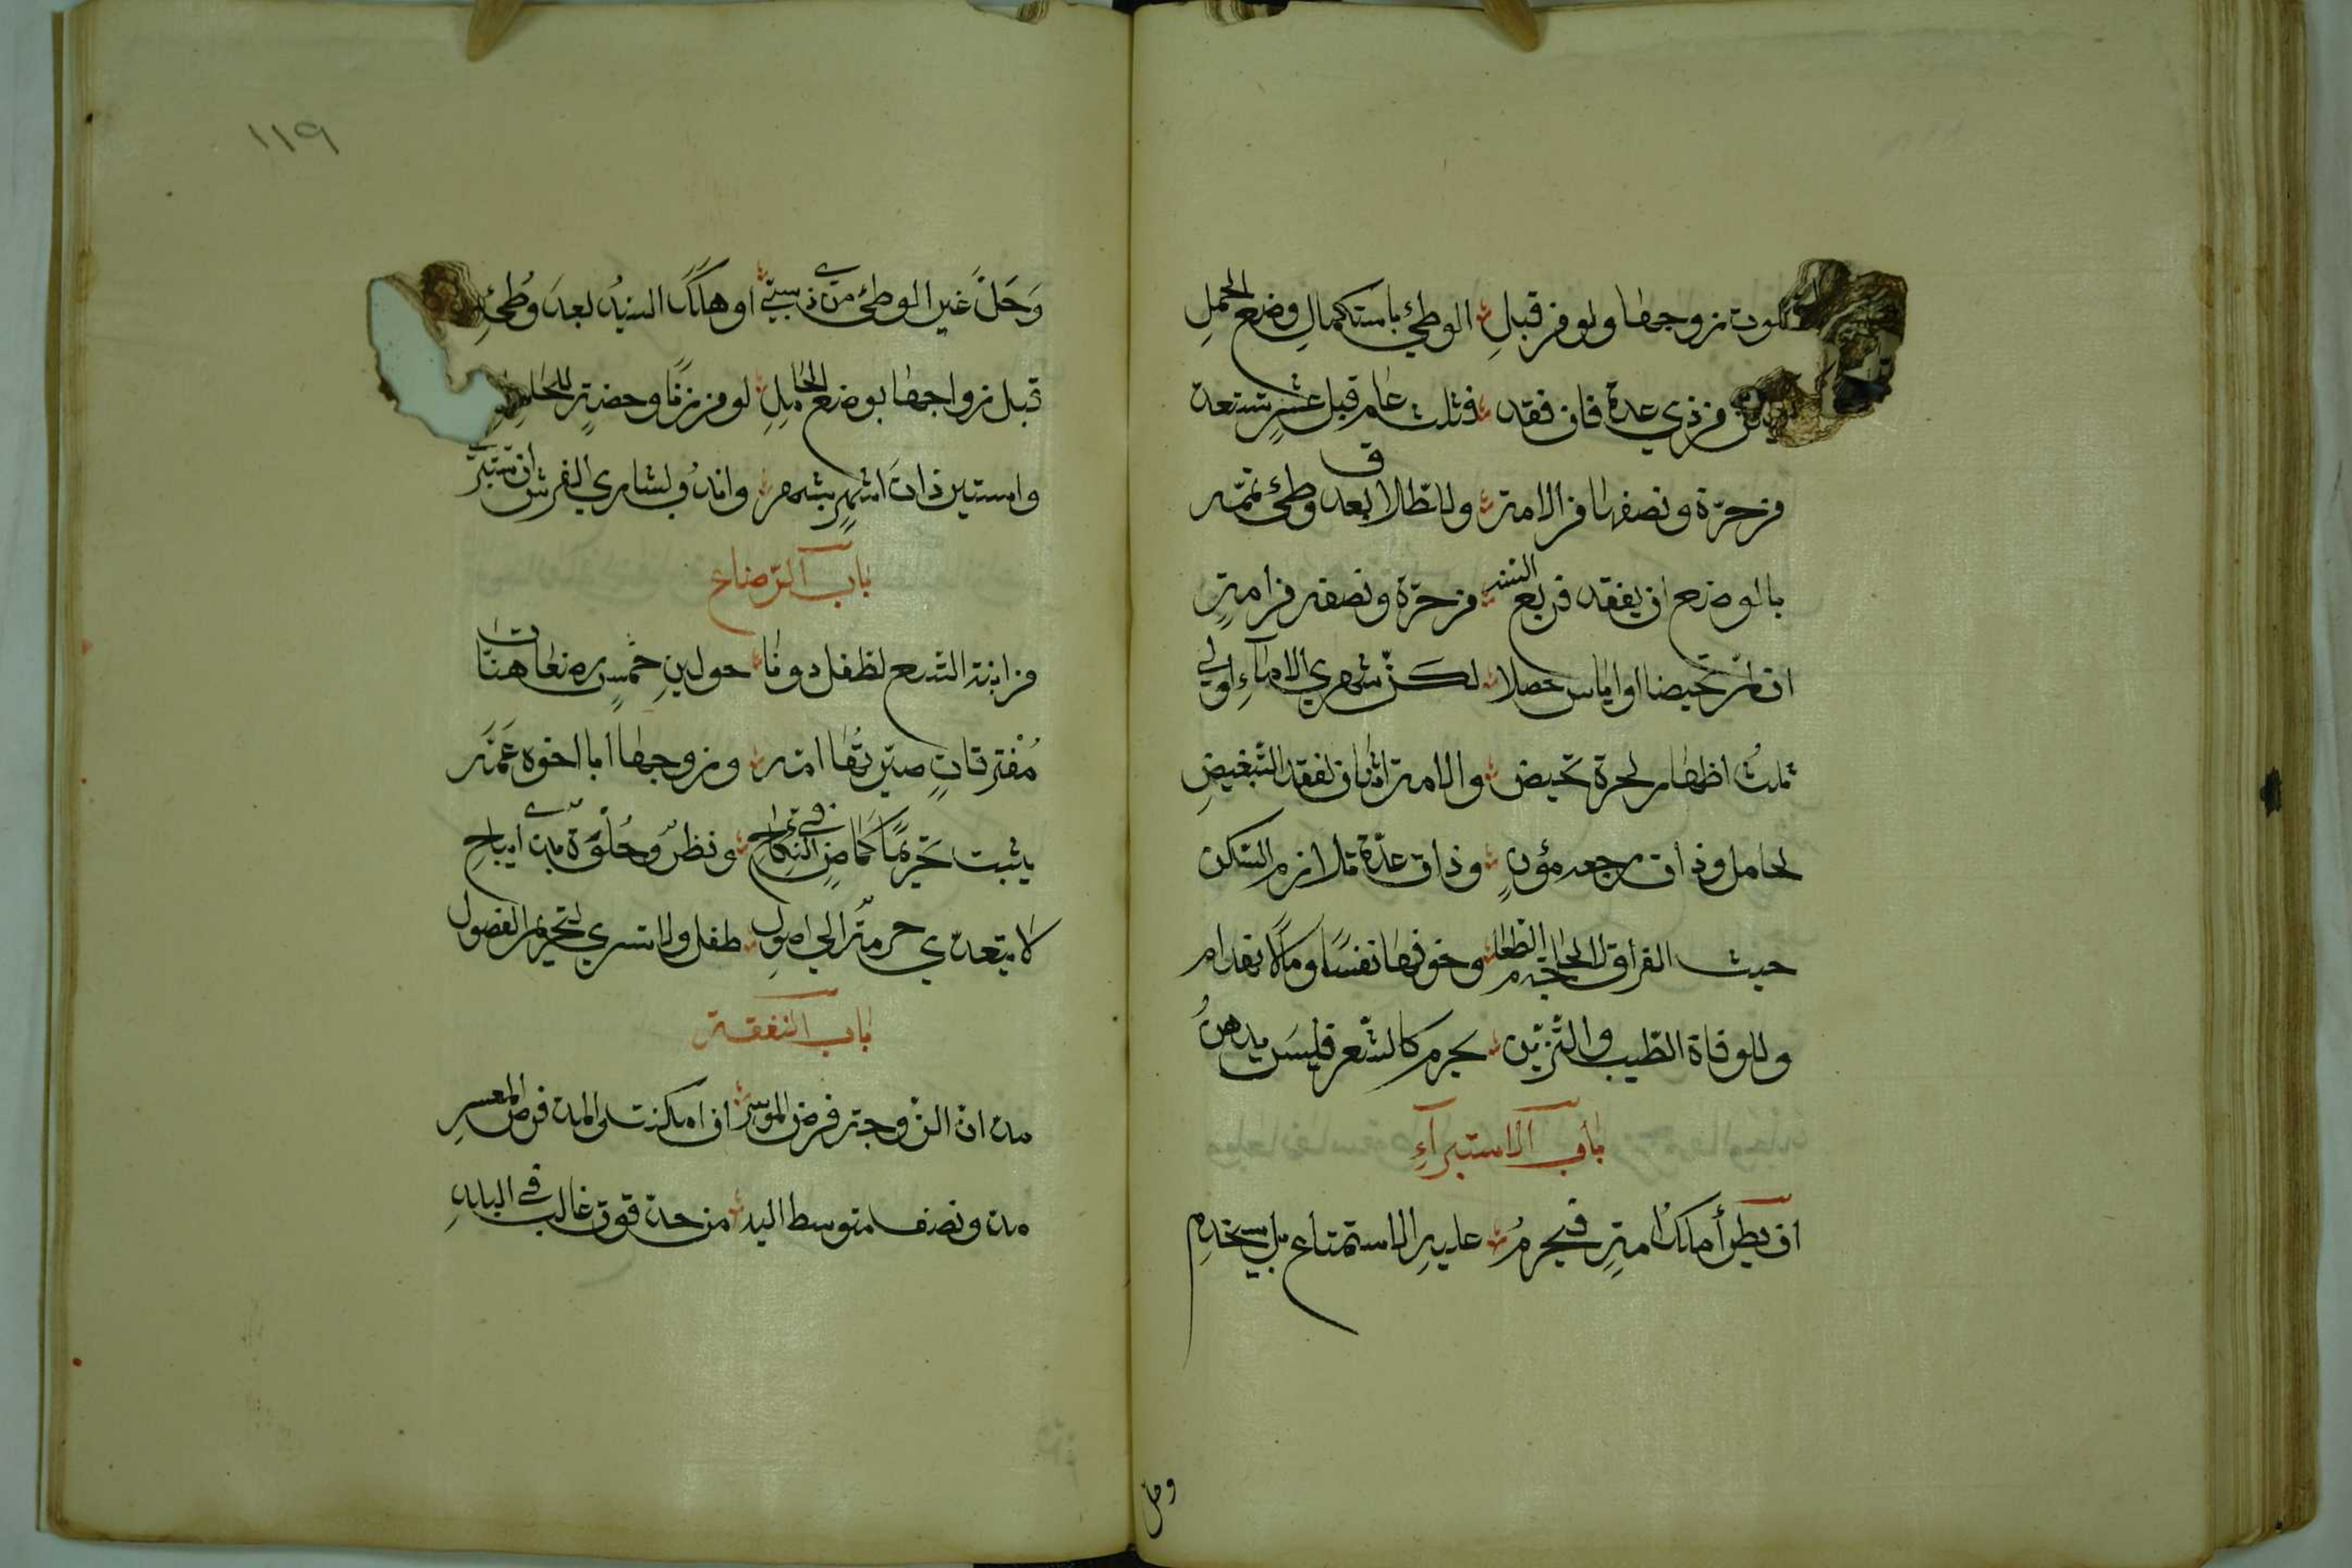 لموت زوجها ولو من قبل الوطئ باستكمال وضع الحمل
يمكن من ذي عدة فان فقد فثلث عام قبل عشر تستعد
من حرّة ونصفها من الامة وللطلاق بعد وطئ تممه
بالوضع ان يفقد فربع السنه من حرّة ونصفه من امة
ان لم تحيضا او اياس حصلا لكن شهري الاماءِ اولى
ثلث اطهار لحرة تحيض والامة اثنان لفقد التبغيضِ
لحامل وذات رجعه مؤنٍ وذات عدّة تلازم السكن
حيث الفراق لا لحاجة الطعام وخوفها نفسًا ومالًا
وللوفاة الطّيب والتّزيّن يحرم كالشعر فليسَ يدهنُ
باب الاستبرآءِ
ان يطرأ ملكُ امةٍ فيحرمُ عليهِ الاستمتاع بل يستخدم
وحل
١١٩
وَحَلّ غير الوطئ من ذي سبيّ او هلكَ السيدُ بعدَ وُطئِ
قبل زواجها بوضع الحاملِ لو من زنًا وحضةٍ للحايلِ
واستبرِ ذات اشهرٍ بشهر واندُب لشاري الفرش ان تستبري
باب الرّضاع
من ابنة التسع لطفل دونا حولينِ خمسٍ رضعات هنّا
مُفترقاتٍ صيّرتُها امّه وزوجها ابا اخوه عَمّه
يثبت تحريمًا كما في النكاح ونظرٌ وخُلْوَةٌ بذي ايباحِ
لا يتعدّي حرمةٌ الي اصولِ طفل ولا تسري لتحريم الفصول
باب النفقة
مدّان للزوجة فرض الموسر ان امكنت والمد فرض المعسرِ
مد ونصف متوسط اليد من حد قوت غالب في البلدِ